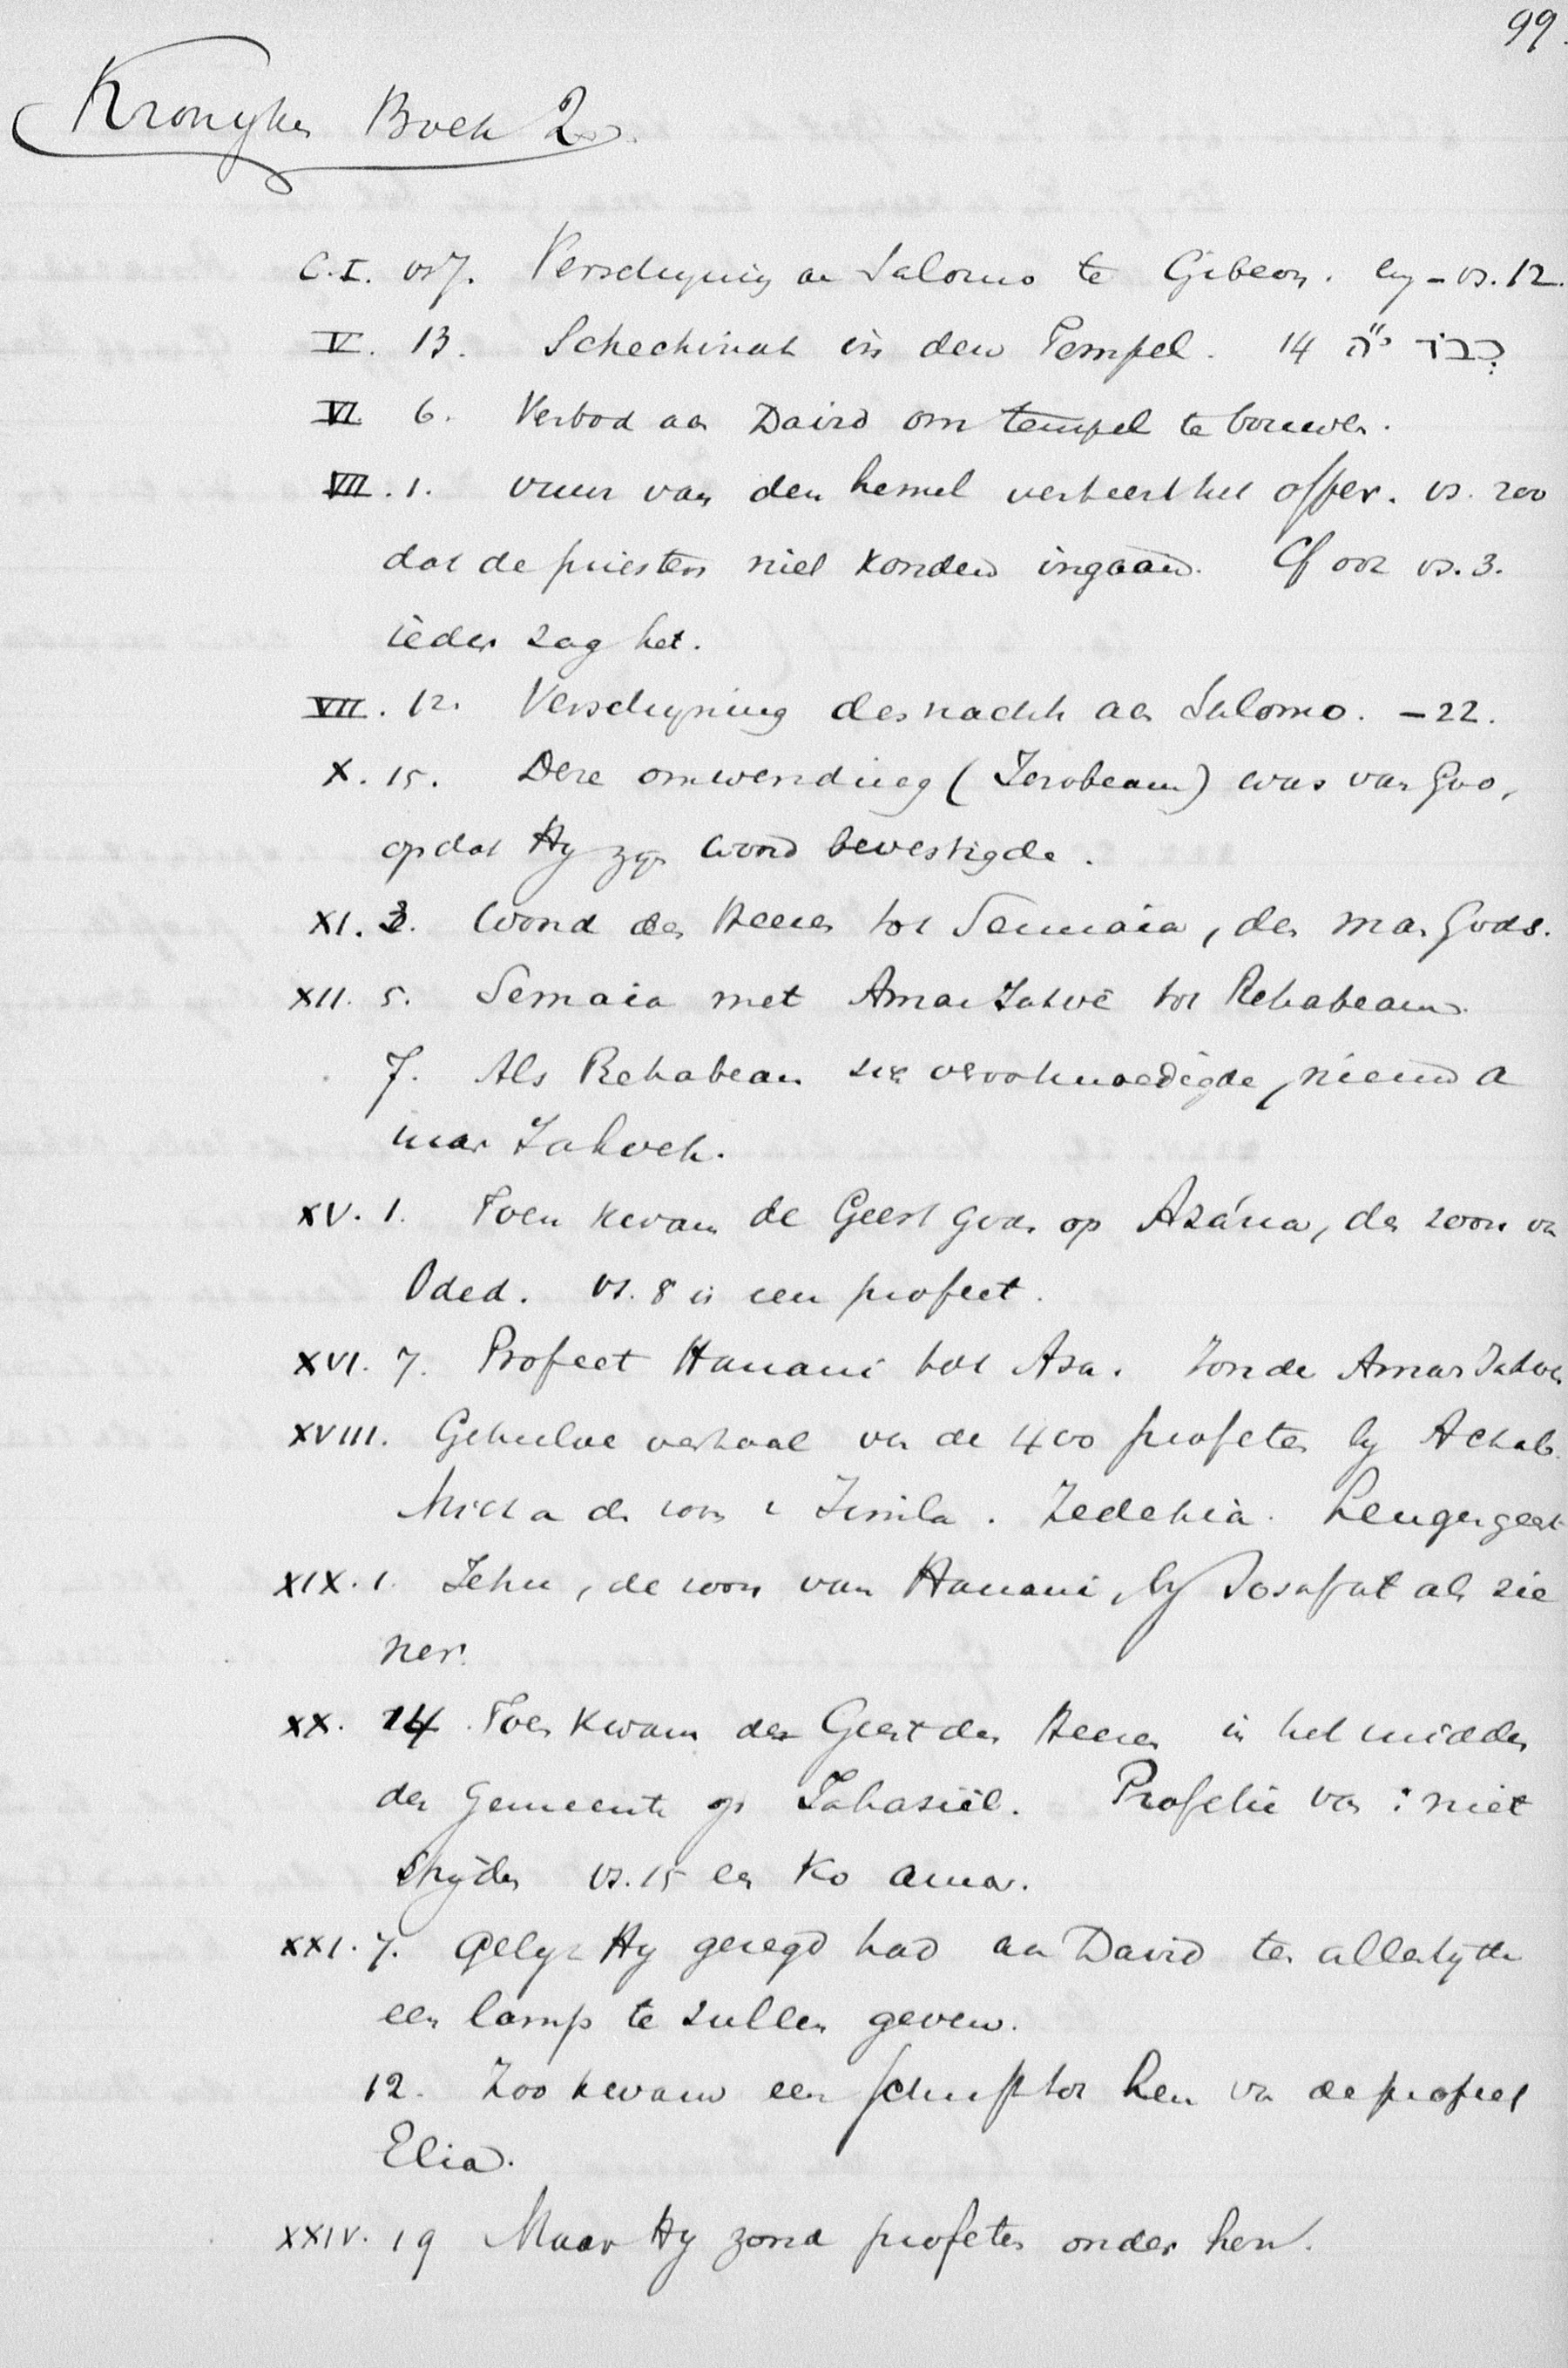 99.
Kronyken Boek 2.
C.I. vs 7. Verschyning aan Salomo te Gibeon. en – vs. 12.
V. 13. Schechinah in den Tempel. 14 כבוד י״ה
VI 6. Verbod aan David om tempel te bouwen.
VII. 1. vuur van den hemel verteert het offer. vs. 200
dat de priesters niet konden ingaan. Cf ook vs. 3.
ieder zag het.
VII. 12. Verschyning des nachts aan Salomo. – 22.
X. 15. Deze omwending (Jerobeam) was van God,
opdat Hy zyn woord bevestigde.
XI. 2. Woord des Heeren tot Semaia, den man Gods.
XII. 5. Semaia met Amar Jahvé tot Rehabeam.
7. Als Rehabeam zich verootmoedigde, nieuw a
mar Jahveh.
XV. 1. Toen kwam de Geest Gods op Azária, den zoon van
Oded. vs. 8 is een profeet.
XVI. 7. Profeet Hanani tot Asa. Zonder Amar Jahve
XVIII. Geheele verhaal van de 400 profeten by Achab.
Micha de zoon v Jimla. Zedekia. Leugengeest
XIX. 1. Jehu, de zoon van Hanani, by Josafat als zie
ner.
XX. 14. Toen kwam de Geest des Heeren in het midden
der gemeente op Jahasiël. Profetie van : niet
stryden vs. 15 en Ko amar.
XXI. 7. gelyk Hy gezegd had aan David ten allen tyde
een lamp te zullen geven.
12. Zoo kwam een schrift tot hen van de profeet
Elia.
XXIV. 19 Maar Hy zond profeten onder hen.